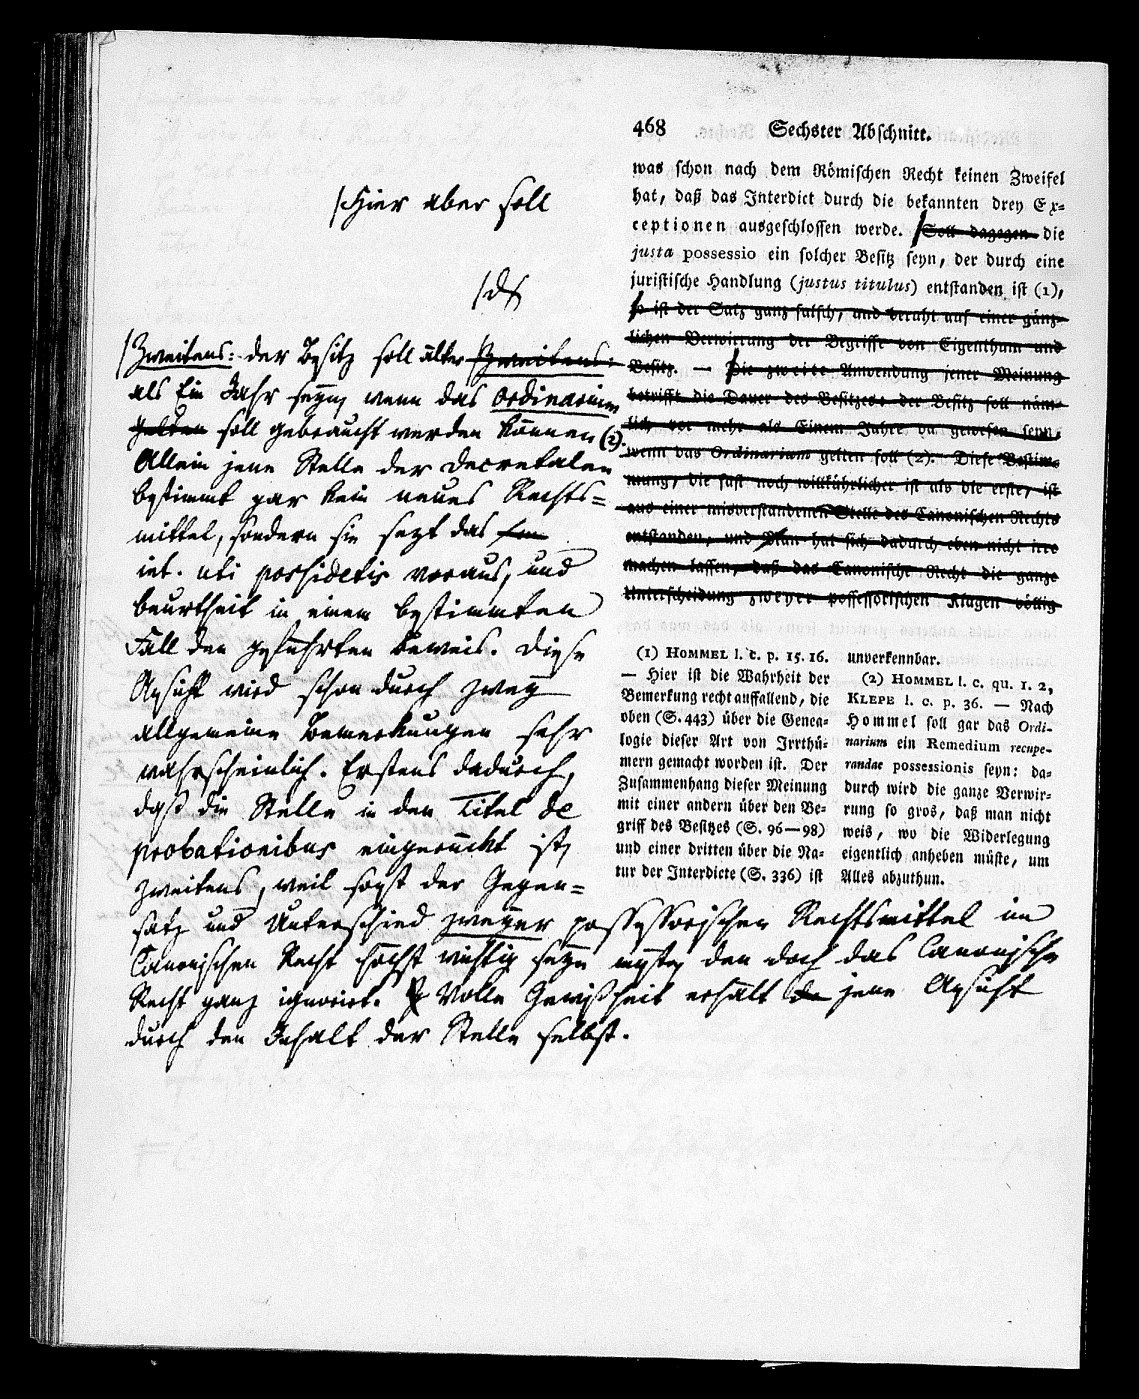 468 Sechster Abschnitt.
was schon nach dem Römischen Recht keinen Zweifel
hat, daß das Interdict durch die bekannten drey Ex-
ceptionen ausgeschlossen werde. Soll dagegen die
justa possessio ein solcher Besitz seyn, der durch eine
juristische Handlung (justus titulus) entstanden ist (1),
so ist der Satz ganz falsch, und beruht auf einer gänz-
lichen Verwirrung der Begriffe von Eigenthum und
Besitz. — Die zweite Anwendung jener Meinung
betrifft die Dauer des Besitzes: der Besitz soll näm-
lich vor mehr als Einem Jahre da gewesen seyn,
wenn das Ordinarium gelten soll (2). Diese Bestim-
mung, die fast noch willkührlicher ist als die erste, ist
aus einer misverstandenen Stelle des Canonischen Rechts
entstanden, und Man hat sich dadurch eben nicht irre
machen lassen, daß das Canonische Recht die ganze
Unterscheidung zweyer possessorischen Klagen völlig
(1) HOMMEL l. c. p. 15. 16.
— Hier ist die Wahrheit der
Bemerkung recht auffallend, die
oben (S. 443) über die Genea-
logie dieser Art von Irrthü-
mern gemacht worden ist. Der
Zusammenhang dieser Meinung
mit einer andern über den Be-
griff des Besitzes (S. 96—98)
und einer dritten über die Na-
tur der Interdicte (S. 336) ist
unverkennbar.
(2) HOMMEL l. c. qu. 1. 2,
KLEPE l. c. p. 36. — Nach
Hommel soll gar das Ordi-
narium ein Remedium recupe-
randae possessionis seyn: da-
durch wird die ganze Verwir-
rung so gros, daß man nicht
weis, wo die Widerlegung
eigentlich anheben müßte, um
Alles abzuthun.
/Hier aber soll
/Zweitens: der Besitz soll älter /Zweitens:
als Ein Jahr seyn, wenn das Ordinarium
gelten soll gebraucht werden können (2).
Allein jene Stelle der Decretalen
bestimmt gar kein neues Rechts=
mittel, sondern sie sezt das
int. uti possidetis voraus, und
beurtheilt in einem bestimmten
Fall den geführten Beweis. Diese
Ansicht wird schon durch zwey
allgemeine Bemerkungen sehr
wahrscheinlich. Erstens dadurch,
daß die Stelle in den Titel de
probationibus eingerückt ist,
zweitens, weil sonst der Gegen=
satz und Unterschied zweyer possessorischen Rechtsmittel im
Canonischen Recht höchst wichtig seyn müßte, den doch das Canonische
Recht ganz ignorirt. Volle Gewißheit erhält die jene Ansicht
durch den Inhalt der Stelle selbst.